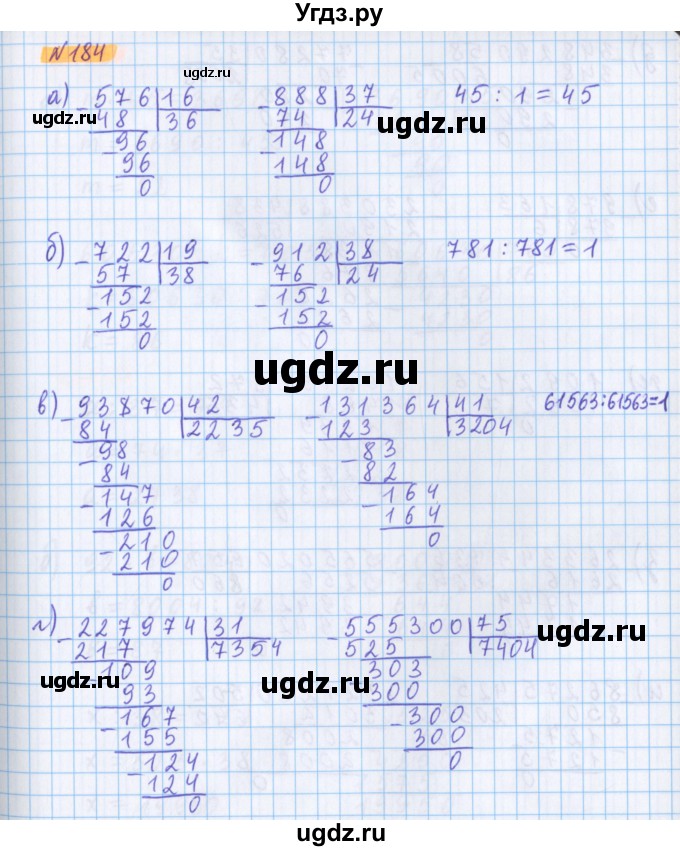 Угдз.ру
N 184
ugdz.ru
а) - 576 | 16    - 888 | 37    45 : 1 = 45
48 | 36    74 | 24
ugdz.ru ugdz.ru
- 96    - 148
96    148
0    0
б) - 722 | 19    - 912 | 38    781 : 781 = 1
57 | 38    76 | 24
- 152    - 152
152    152
0    0
ugdz.ru
в) - 93870 | 42    - 131364 | 41    61563:61563=1
84 | 2235    123 | 3204
- 98    - 83
84    82
- 147    - 164
126    164
- 210    0
210
0
г) - 227974 | 31    - 555300 | 75
217 | 7354    525 | 7404
ugdz.ru
- 109    - 303
ugdz.ru ugdz.ru
93    300
- 167    - 300
155    300
- 124    0
124
0
ugdz.ru